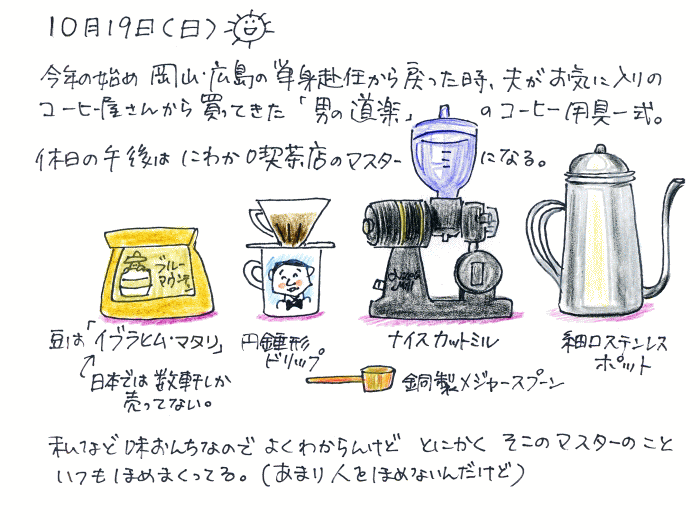 10月19日(日)
今年の始め 岡山・広島の単身赴任から戻った時、夫がお気に入りの
コーヒー屋さんから買ってきた「男の道楽」のコーヒー用具一式。
休日の午後は にわか喫茶店のマスターになる。
ブルー
マウンテン
豆は「イブラヒム・マタリ」
日本では数軒しか
売ってない。
円錐形
ドリップ
ナイスカットミル
細口ステンレス
ポット
銅製メジャースプーン
私など味おんちなので よくわからんけど とにかく そこのマスターのこと
いつもほめまくってる。(あまり人をほめないんだけど)